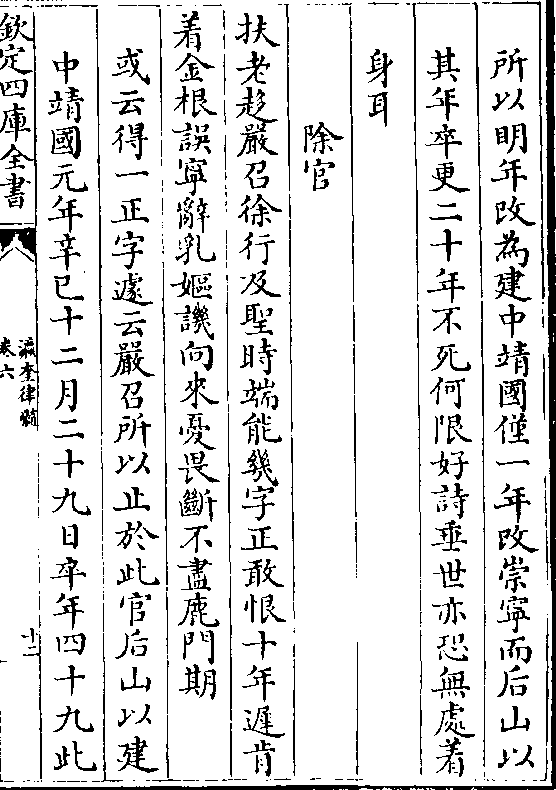 所以明年改為建中靖國僅一年改崇寧而后山以
其年卒更二十年不死何限好詩垂世亦恐無處着
身耳
除官
扶老趍嚴召徐行及聖時端能幾字正敢恨十年遲肯
着金根誤寧辭乳嫗譏向來憂畏斷不盡鹿門期
或云得一正字遽云嚴召所以止於此官后山以建
中靖國元年辛巳十二月二十九日卒年四十九此
欽定四庫全書
瀛奎律髓
卷六
十二